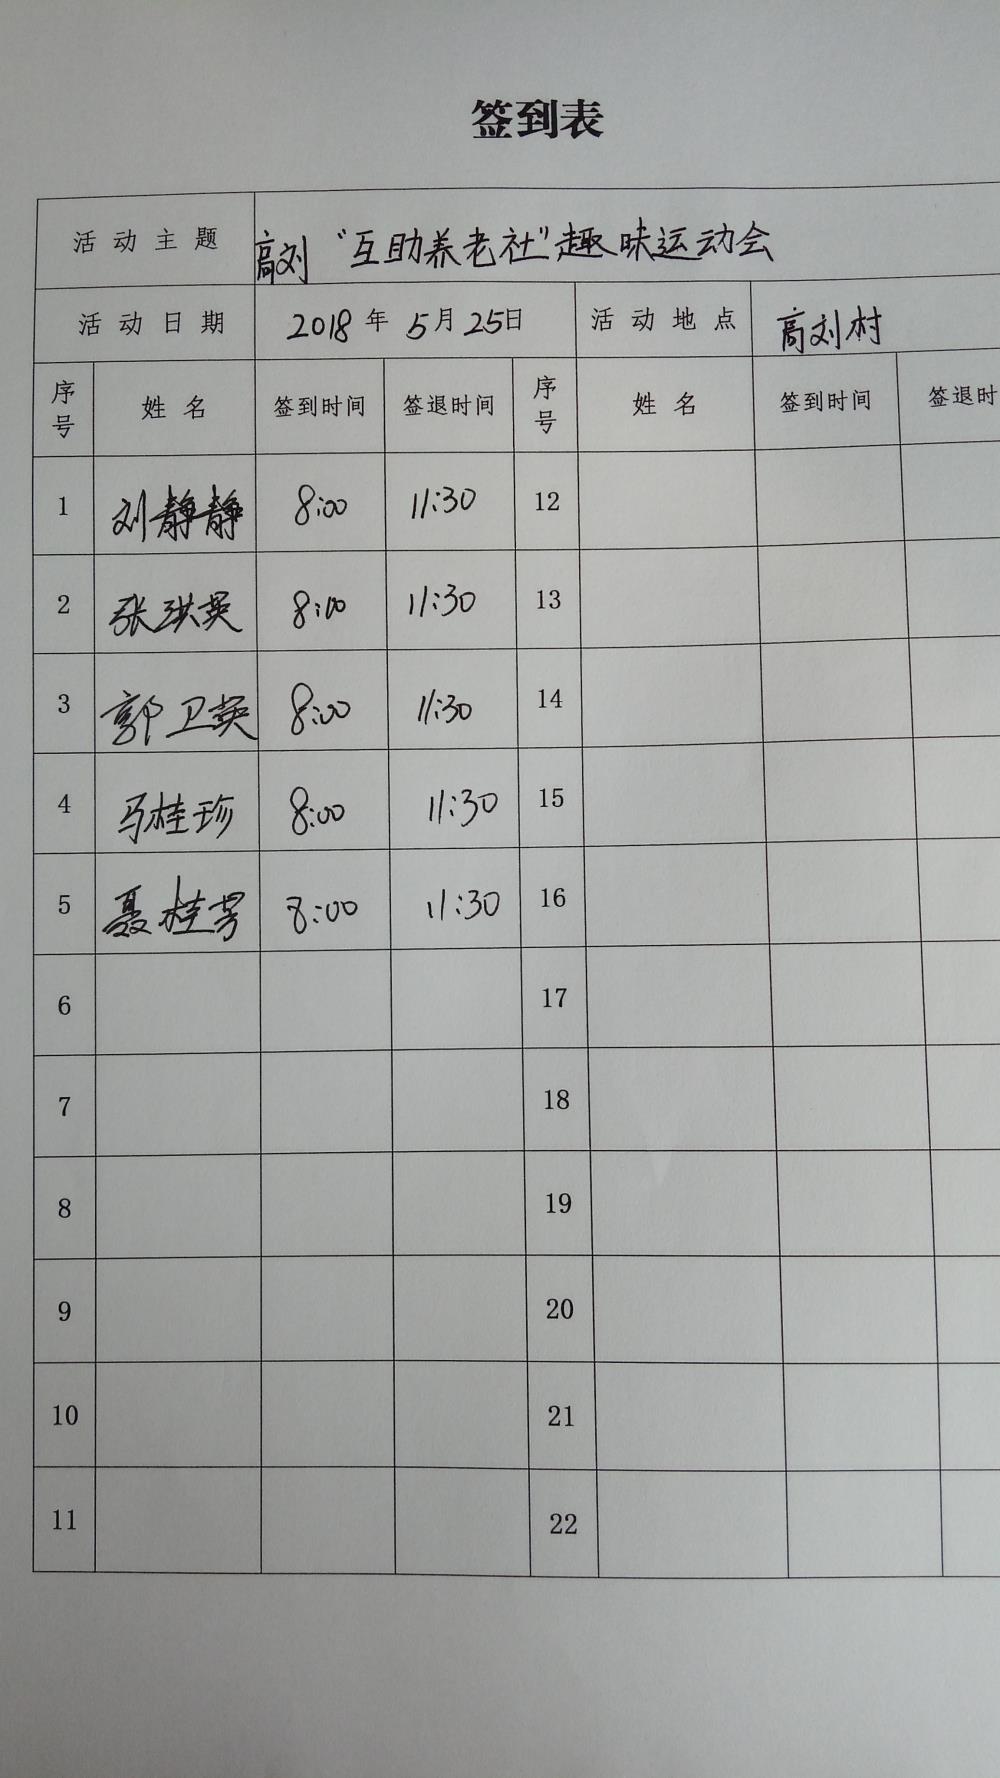 签到表
活动主题 高刘“互助养老社”趣味运动会
活动日期 2018年5月25日 活动地点 高刘村
序号 姓名 签到时间 签退时间 序号 姓名 签到时间 签退时
1 刘静静 8:00 11:30 12
2 张洪英 8:00 11:30 13
3 郭卫英 8:00 11:30 14
4 马桂珍 8:00 11:30 15
5 聂桂芳 8:00 11:30 16
6 17
7 18
8 19
9 20
10 21
11 22